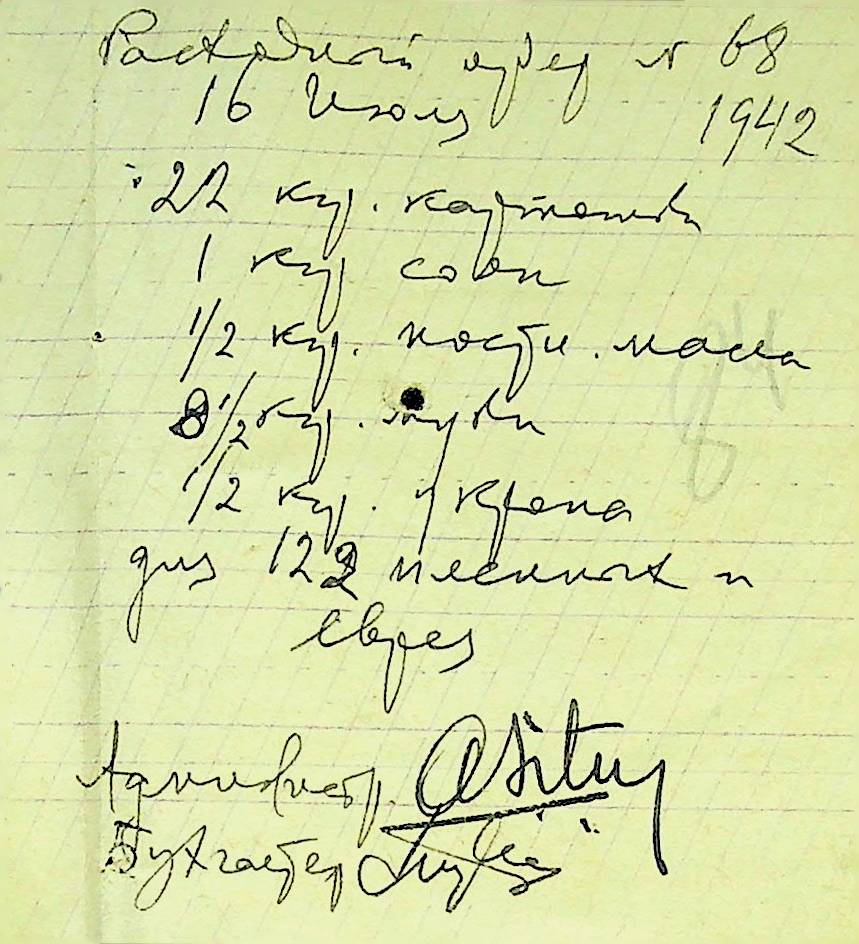 Расходный ордер № 68
16 Июля 1942
22 кгр. картошки
1 кгр соли
1/2 кгр. костн. масла
8 1/2 кгр. муки
1/2 кгр. укропа
для 122 пленных и
еврея
Администр.
Бухгалтер